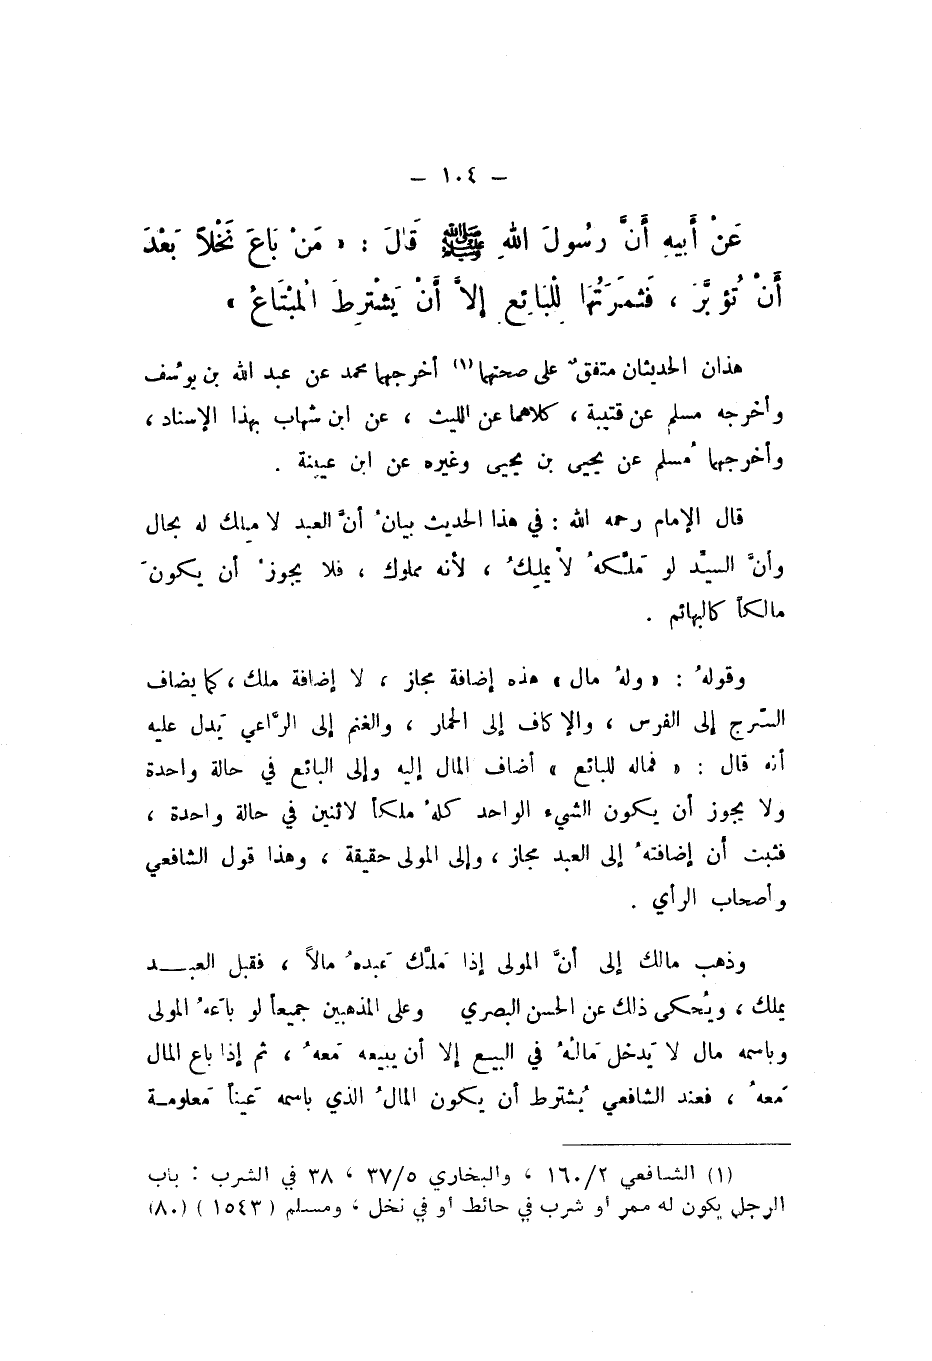 – ١٠٤ –
عَنْ أَبِيهِ أَنَّ رسُولَ اللهِ ﷺ قَالَ : « مَنْ بَاعَ نَخْلاً بَعْدَ
أَنْ تُؤبَّرَ ، فَثمَرَتُهَا لِلْبَائِعِ إلاَّ أَنْ يَشْتَرِطَ الْمبْتَاعُ »
هذان الحديثان متفقٌ على صحتهما (١) أخرجهما محمد عن عبد الله بن يوسُف
وأخرجه مسلم عن قتيبة ، كلاهما عن الليث ، عن ابن شهاب بهذا الإسناد ،
وأخرجهما مُسلم عن يحيى بن يحيى وغيره عن ابن عيينة .
قال الإمام رحمه الله : في هذا الحديث بيانُ أنَّ العبد لا مِلك له بحال
وأنَّ السيِّد لو مَلَّكهُ لا يملِكُ ، لأنه مملوك ، فلا يجوزُ أن يكونَ
مالكاً كالبهائم .
وقولهُ : « ولهُ مال » هذه إضافة مجاز ، لا إضافة ملك ، كما يضاف
السَّرج إلى الفرس ، والإكاف إلى الحمار ، والغنم إلى الرَّاعي يَدل عليه
أنه قال : « فماله للبائع » أضاف المال إليه وإلى البائع في حالة واحدة
ولا يجوز أن يكون الشيء الواحد كلهُ ملكاً لاثنين في حالة واحدة ،
فثبت أن إضافتهُ إلى العبد مجاز ، وإلى المولى حقيقة ، وهذا قول الشافعي
وأصحاب الرأي .
وذهب مالك إلى أنَّ المولى إذا مَلَّك عَبدهُ مالاً ، فقبل العبد
يملك ، ويُحكى ذلك عن الحسن البصري وعلى المذهبين جميعاً لو باعَهُ المولى
وباسمه مال لا يَدخل مَالُهُ في البيع إلا أن يبيعه مَعهُ ، ثم إذا باع المال
مَعهُ ، فعند الشافعي يُشترط أن يكون المالُ الذي باسمه عَيناً مَعلومة
(١) الشافعي ١٦٠/٢ ، والبخاري ٣٧/٥ ، ٣٨ في الشرب : باب
الرجل يكون له ممر أو شرب في حائط أو في نخل ، ومسلم ( ١٥٤٣ ) (٨٠)